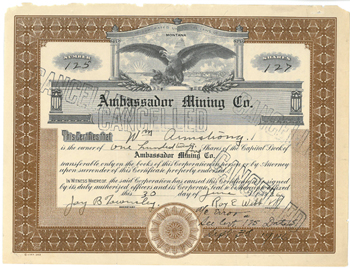 MONTANA
NUMBER
SHARES
125
127
Ambassador Mining Co.
CANCELLED
This Certifies that Wm Armstrong
is the owner of one hundred Shares of the Capital Stock of
Ambassador Mining Co.
transferable only on the books of this Corporation in person or by Attorney
upon surrender of this Certificate properly endorsed.
IN WITNESS WHEREOF, the said Corporation has caused this Certificate to be signed
by its duly authorized officers and its Corporate Seal to be hereunto affixed
this 20 day of June
Roy E.
Jay B.